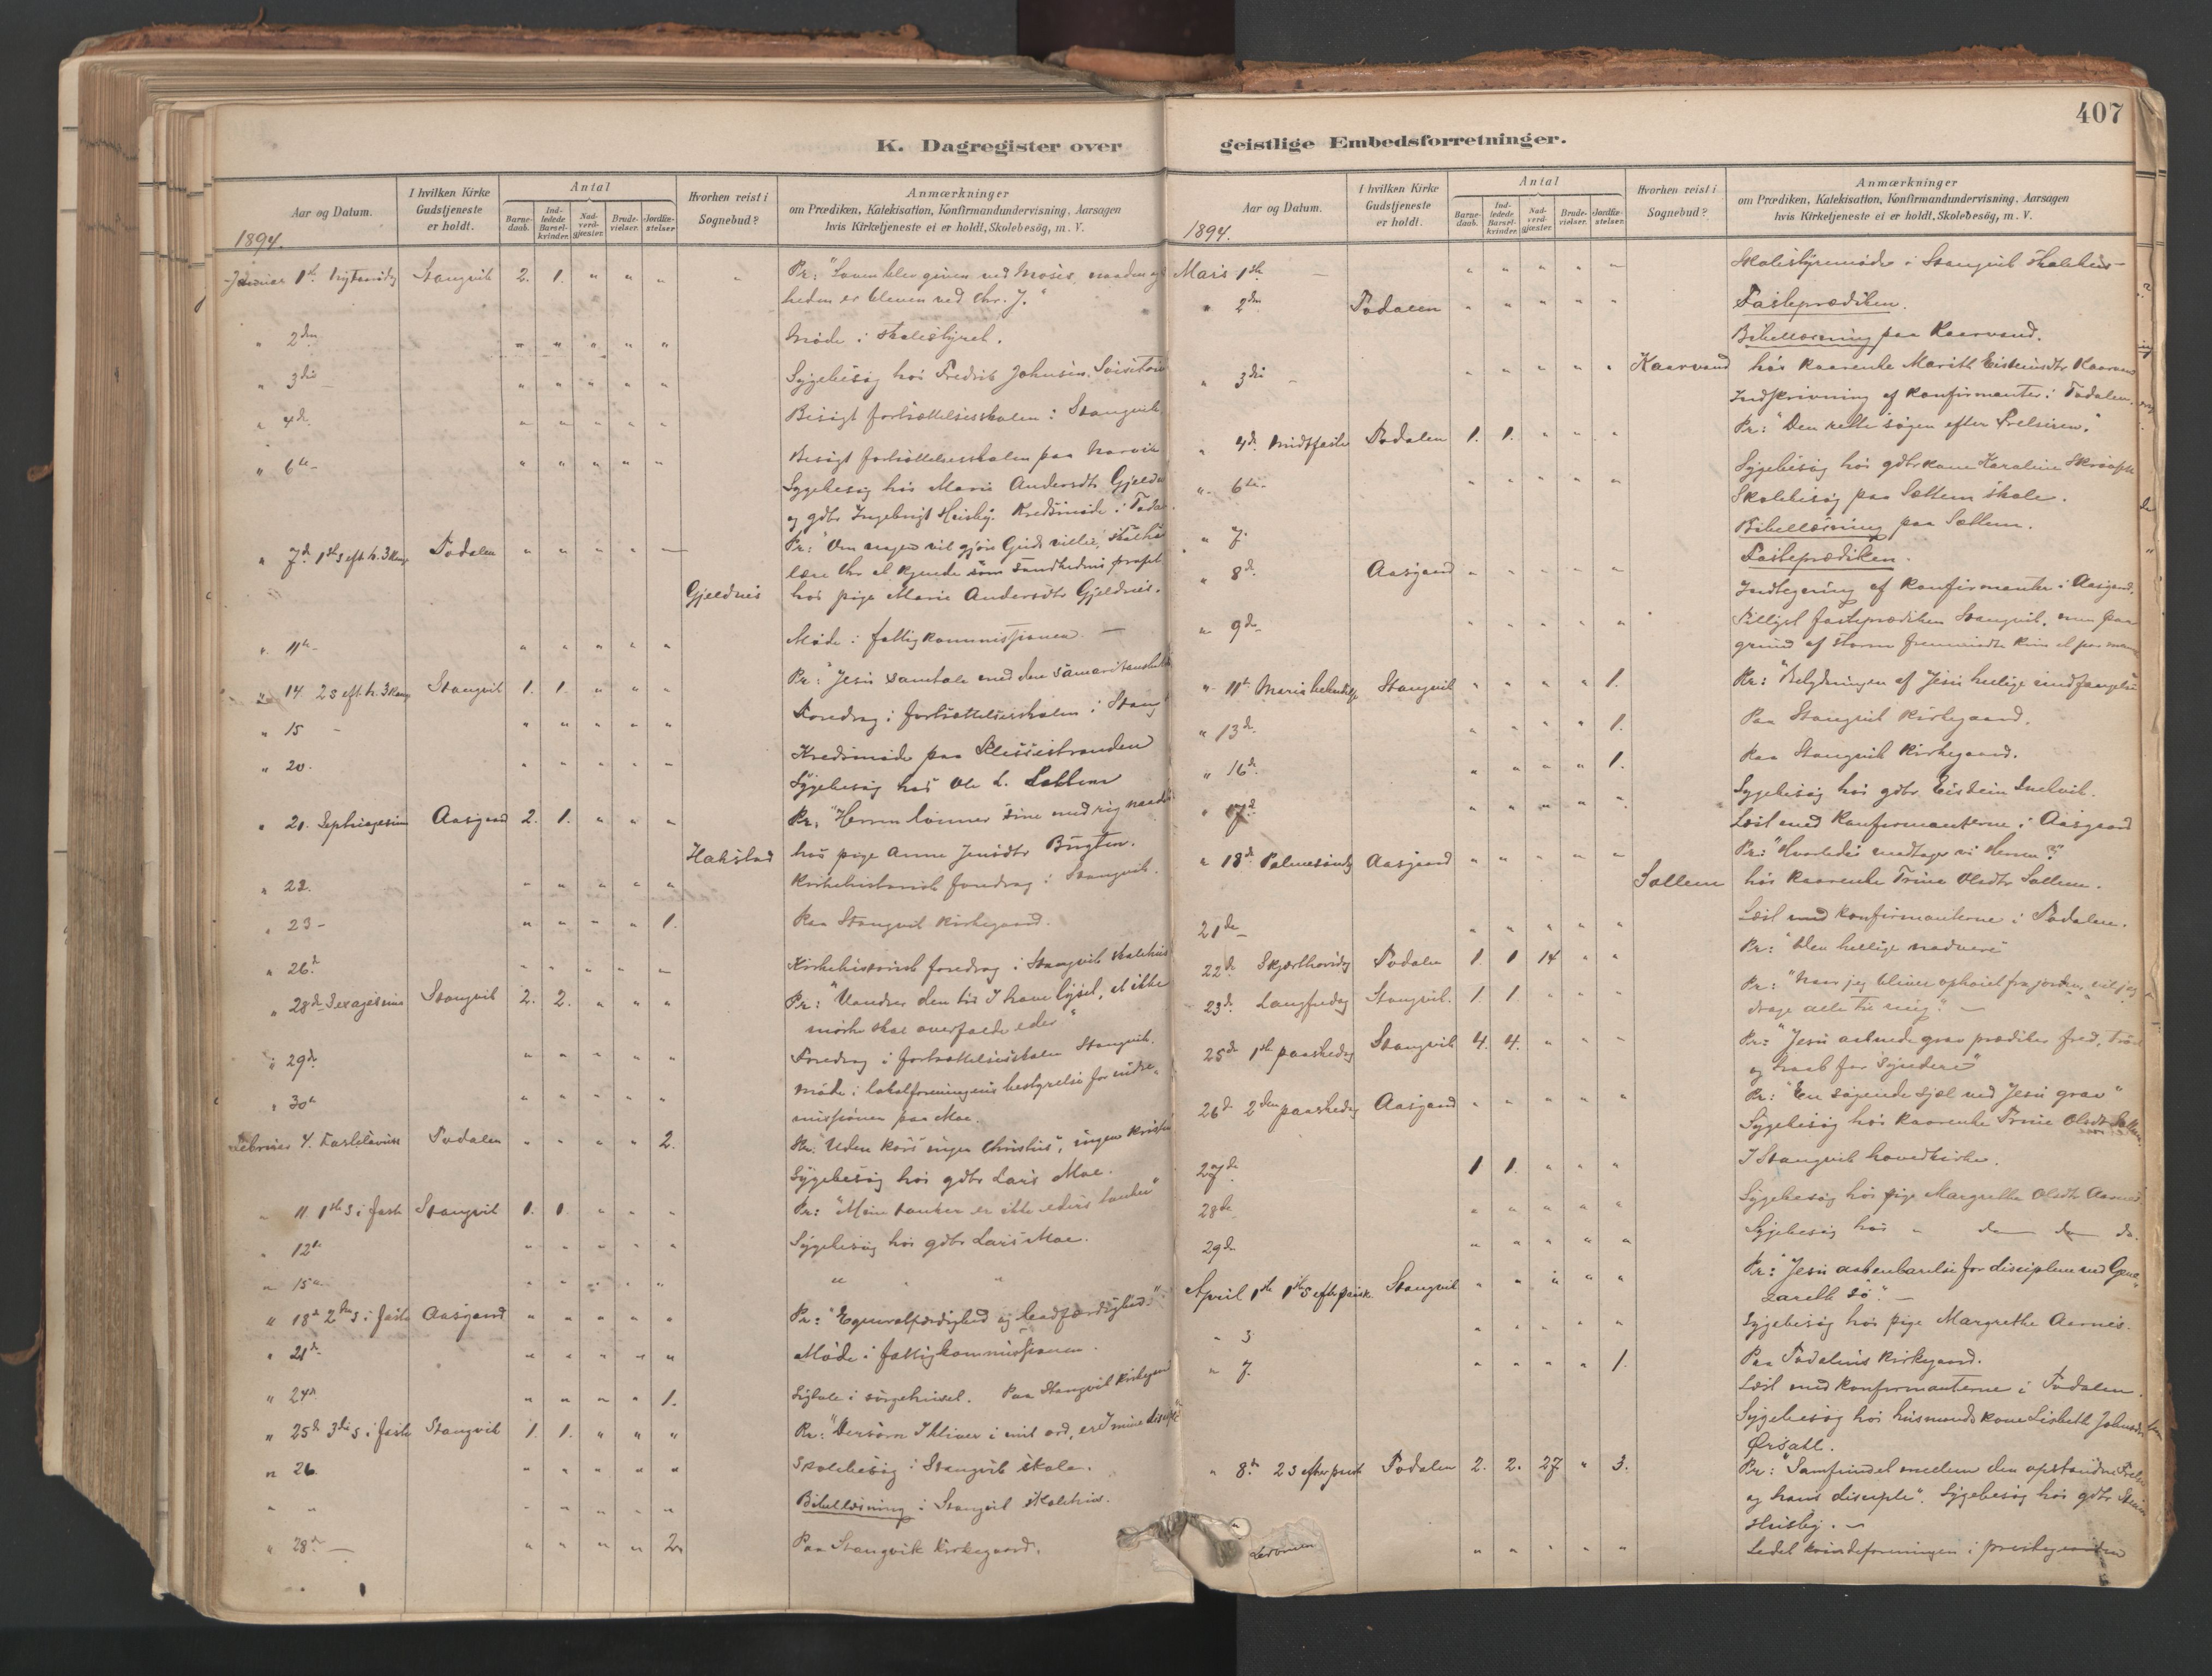 407
K. Dagregister over geistlige Embedsforretninger.
Aar og Datum.
I hvilken Kirke Gudstjeneste er holdt.
Antal
Barne-daab.
Ind-ledede Barsel-kvinder.
Nad-verd-gjæster.
Brude-vielser.
Jordfæ-stelser
Hvorhen reist i Sognebud?
Anmærkninger
om Prædiken, Katekisation, Konfirmandundervisning, Aarsagen
hvis Kirketjeneste ei er holdt, Skolebesög, m. V.
1894.
Januar 1ste Nytaarsdag Stangvik 2. 1. " " " " Pr: "Loven blev given ved Moses, naaden og
heden er bleven ved Chr. J."
" 2den " " " " " Møde i skolestyret.
" 3die " " " " " Sygebesøg hos Fredrik Johnsen
" 4de " " " " " Besøgt fortsættelsesskolen i Stangvik
" 6te " " " " " Besøgt fortsættelsesskolen paa
Sygebesøg hos Marie Andersdtr Gjeldnes
og gdbr Ingebrigt Husby. Kredsmøde i Toda
" 7de 1ste s eft h. 3 kong Todalen " " " " Pr: "Om nogen vil gjøre Guds villie, skal
lære Chr at kjende som sandhedens profet
Gjeldnes hos pige Marie Andersdtr Gjeldnes.
" 11te " " " " " Møde i fattigkommissionen.
" 14. 2 s eft h. 3 kong Stangvik 1. 1. " " " Pr: "Jesu samtale med den samaritanske
" 15 " " " " " Foredrag i fortsættelsesskolen i Stang
" 20. " " " " " Kredsmøde paa
Sygebesøg hos Ole L. Settem
" 21. Septuagesima Aasgaard 2. 1. " " " Pr. "Herren lønner sine med rig naade
Halstad hos pige Anne Jensdtr Bugten.
" 22. " " " " " Kirkehistorisk foredrag i Stangvik.
" 23 " " " " 1. Paa Stangvik kirkegaard.
" 26. " " " " Kirkehistorisk foredrag i Stangvik skolehus
" 28de Sexagesima Stangvik 2. 2. " " " Pr: "Vandrer den tid I have lyset, at ikke
mørke skal overfalde eder"
" 29de " " " " " Foredrag i fortsættelsesskolen Stangvik.
" 30te " " " " " Møde i lokalforeningens bestyrelse for indre-
missionen paa Moe.
Februar 4. Fastelavn Todalen " " " " 2. Pr. "Uden kors ingen Christus", ingen kristen
Sygebesøg hos gdbr Lars Moe.
" 11. 1ste s i faste Stangvik 1. 1. " " " Pr: "Mine tanker er ikke eders tanker"
" 12te " " " " " Sygebesøg hos gdbr Lars Moe.
" 15de " " " " " " " "
" 18de 2den s i faste Aasgaard " " " " " Pr: "Egenretfærdighed og
" 21de " " " " " Møde i fattigkommissionen.
" 24de " " " " 1. Ligtale i sørgehuset. Paa Stangvik kirkegaard
" 25de 3die s i faste Stangvik 1. 1. " " " Pr: "Dersom I bliver i mit ord, er I mine disciple
" 26. " " " " " Skolebesøg i Stangvik skole.
" " " " " " " Bibellæsning i Stangvik skolehus.
" 28de " " " " 2. Paa Stangvik kirkegaard.
Aar og Datum.
I hvilken Kirke Gudstjeneste er holdt.
Antal
Barne-daab.
Ind-ledede Barsel-kvinder.
Nad-verd-gjæster.
Brude-vielser.
Jordfæ-stelser.
Hvorhen reist i Sognebud?
Anmærkninger
om Prædiken, Katekisation, Konfirmandundervisning, Aarsagen
hvis Kirketjeneste ei er holdt, Skolebesög, m. V.
1894.
Marts 1ste " " " " " Skolestyremøde i Stangvik skolehus
" 2den Todalen " " " " " Fasteprædiken.
Bibellæsning paa Kaarvand.
" 3die " " " " " Kaarvand hos kaarenke Marith Eistensdtr Kaarvand
Indskrivning af konfirmanter i Todalen.
" 4de Midtfaste Todalen 1. 1. " " " Pr: "Den rette søgen efter Frelseren."
" 6te " " " " " Sygebesøg hos gdbrkone Karoline
Skolebesøg paa Settem skole.
" 7. Bibellæsning paa Settem.
" 8de Aasgaard " " " " " Fasteprædiken.
Indtegning af konfirmanter i Aasgaard.
" 9de " " " " " Tillyst fasteprædiken Stangvik, men paa
grund af storm fremmødte kun et par
" 11te Marie bebudelse Stangvik " " " " 1. Pr: "Betydningen af Jesu hellige undfangelse
" 13de " " " " 1. Paa Stangvik kirkegaard.
" 16de " " " " 1. Paa Stangvik kirkegaard.
" 17de " " " " " Sygebesøg hos gdbr Eistein
Læst med konfirmanterne i Aasgaard
" 18de Palmesøndag Aasgaard " " " " " Pr: "Hvorledes modtager vi Herren?"
Settem hos kaarenke Trine Olsdtr Settem.
21de " " " " " Læst med konfirmanterne i Todalen.
22de Skjærthorsdag Todalen 1. 1 14 " " Pr: "Den hellige nadvere"
23de Langfredag Stangvik. 1. 1. " " " Pr: "Naar jeg bliver ophøiet fra jorden, vil jeg
drage alle til mig."
25de 1ste paaskedag Stangvik 4. 4. " " " Pr: "Jesu aabnede grav prædiker fred, trøst
og haab for syndere"
26de 2den paaskedag Aasgaard " " " " " Pr: "En søgende sjæl ved Jesu grav"
Sygebesøg hos kaarenke Trine Olsdtr Settem.
27de 1 1. " " " I Stangvik hovedkirke.
28de " " " " " Sygebesøg hos pige Margrethe Olsdtr Aarnes
29de " " " " " Sygebesøg hos " do do do.
April 1ste 1ste s efter paask. Stangvik " " " " " Pr: "Jesu aabenbarelse for disciplene ved Gene-
zareth sø."
" 3 " " " " " Sygebesøg hos pige Margrethe Aarnes.
" 7. " " " " 1. Paa Todalens kirkegaard.
Læst med konfirmanterne i Todalen.
Sygebesøg hos husmandskone Lisbeth Johnsdtr
Ørsahl.
" 8de 2 s efter paask Todalen 2. 2. 27 " 3. Pr: "Samfundet mellem den opstandne Frelser
og hans disciple". Sygebesøg hos gdbr
Husby.
" " " " " Ledet kvindeforeningen i prestegaarden